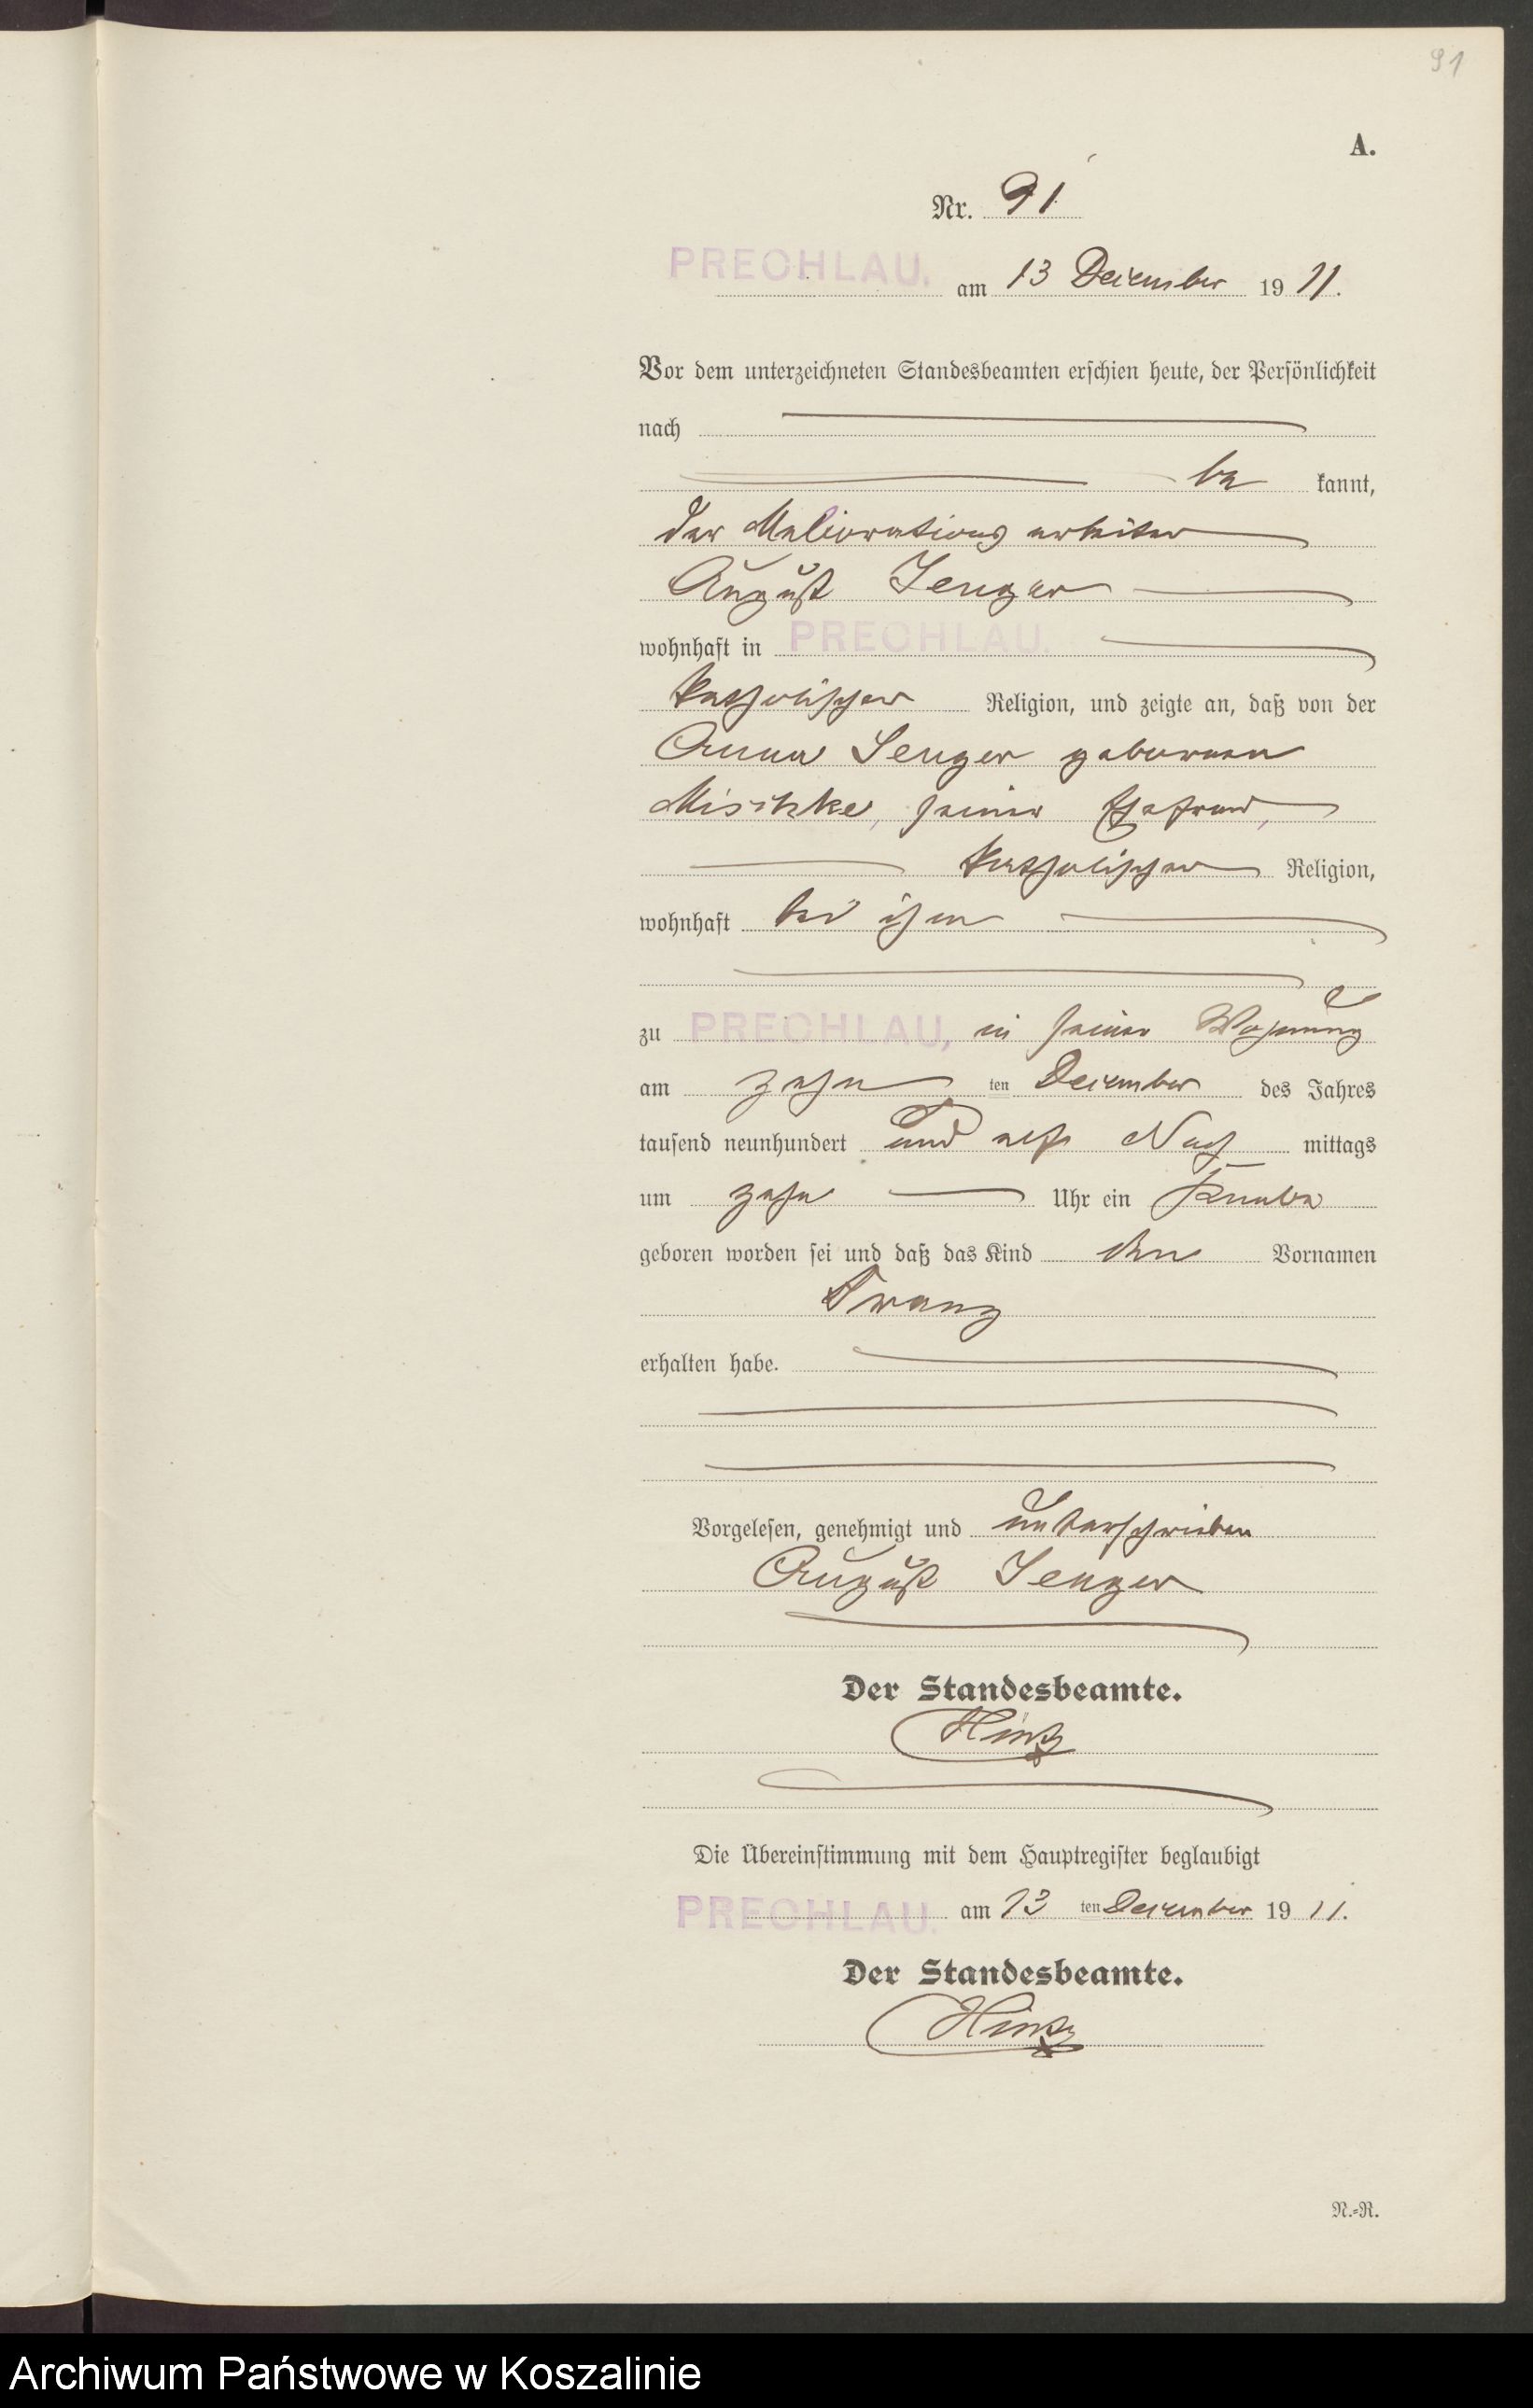 91
A.
Nr. 91
PRECHLAU. am 13 Dezember 1911.
Vor dem unterzeichneten Standesbeamten erschien heute, der Persönlichkeit
nach
be kannt,
der Meliorations arbeiter
August Senger
wohnhaft in PRECHLAU.
katholischer Religion, und zeigte an, daß von der
Anna Senger geborenen
Mischke, seiner Ehefrau,
katholischer Religion,
wohnhaft bei ihm
zu PRECHLAU, in seiner Wohnung
am zehn ten Dezember des Jahres
tausend neunhundert und elf Nach mittags
um zehn Uhr ein Knabe
geboren worden sei und daß das Kind den Vornamen
Franz
erhalten habe.
Vorgelesen, genehmigt und unterschrieben
August Senger
Der Standesbeamte.
Hintz
Die Übereinstimmung mit dem Hauptregister beglaubigt
PRECHLAU. am 13 ten Dezember 1911.
Der Standesbeamte.
Hintz
N.-R.
Archiwum Państwowe w Koszalinie